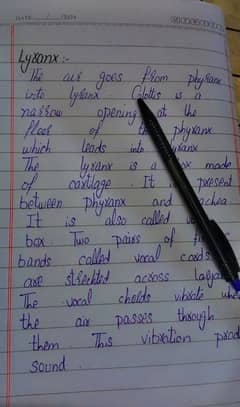 DATE
Lyranx :-
The air goes from phyranx
into lyranx Glottis is a
narrow opening at the
floor of phyranx
which leads into
The lyranx is a made
of cartilage. It present
between phyranx and
It is also called
box. Two pairs of
bands called vocal cords
are stretched across
The vocal cholds vibrate
the air passes through
them. This vibration
sound.